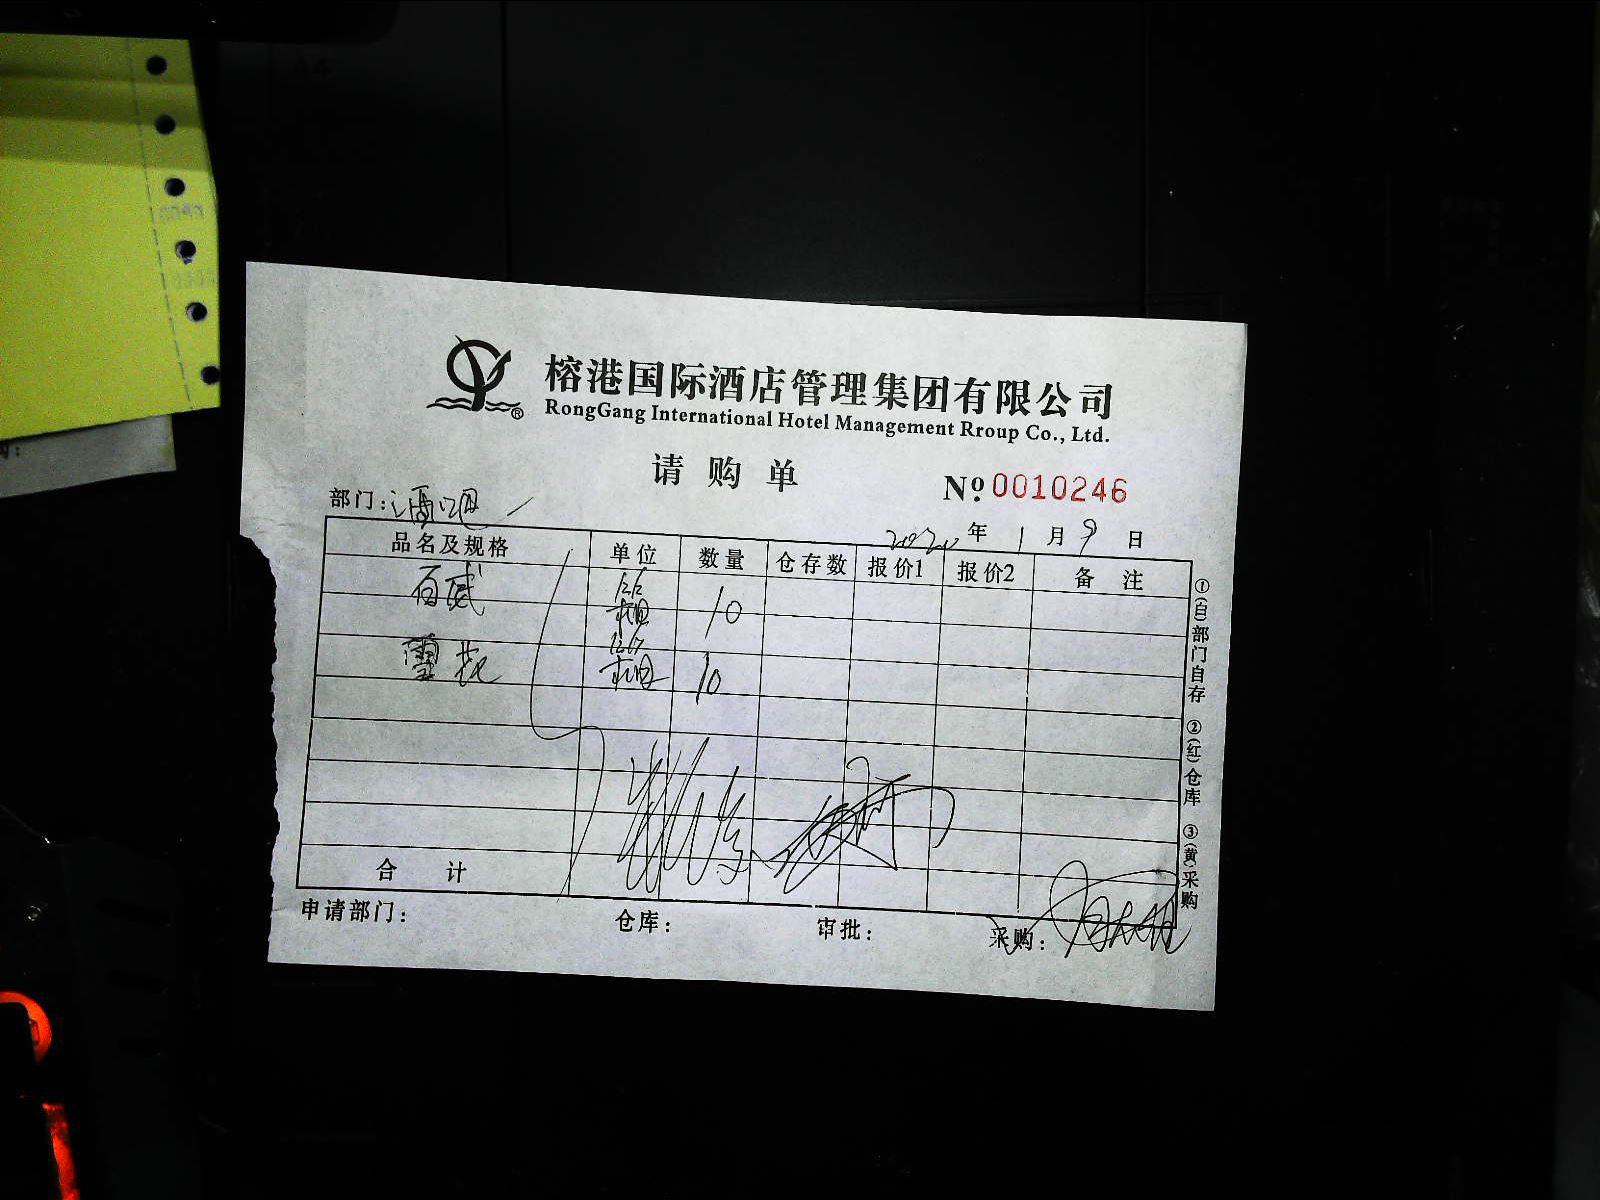 榕港国际酒店管理集团有限公司
RongGang International Hotel Management Rroup Co., Ltd.
请购单
№ 0010246
部门:酒吧
2020年1月9日
品名及规格 单位 数量 仓存数 报价1 报价2 备注
百威 箱 10
雪花 箱 10
合计
申请部门: 仓库: 审批: 采购:
①(白)部门自存 ②(红)仓库 ③(黄)采购